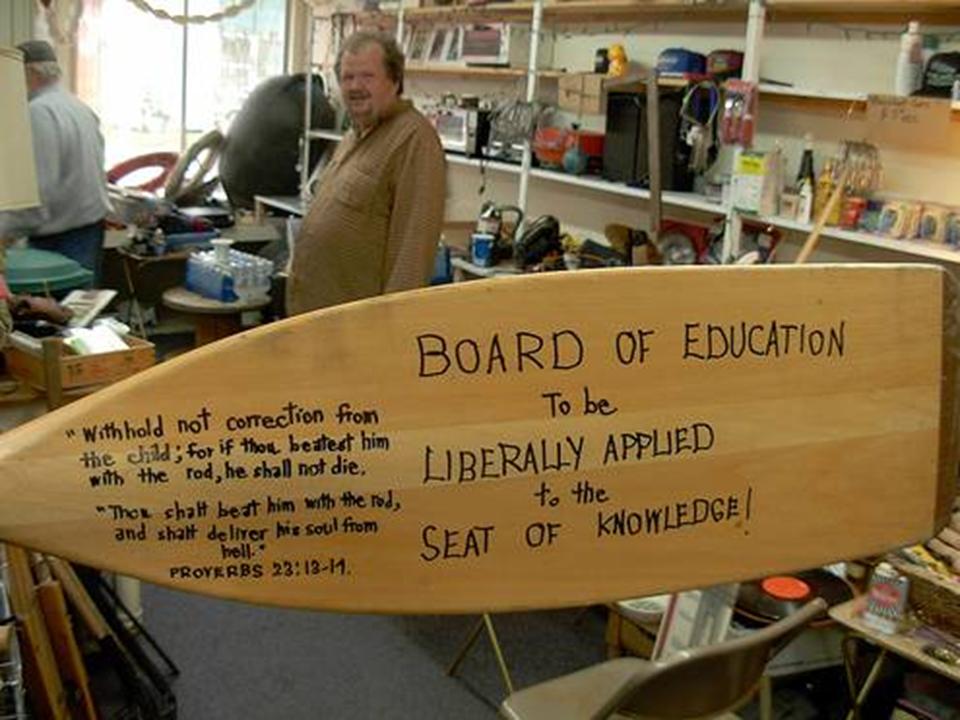 "Withhold not correction from
the child; for if thou beatest him
with the rod, he shall not die.
"Thou shalt beat him with the rod,
and shalt deliver his soul from
hell."
PROVERBS 23:13-14.
BOARD OF EDUCATION
To be
LIBERALLY APPLIED
to the
SEAT OF KNOWLEDGE!